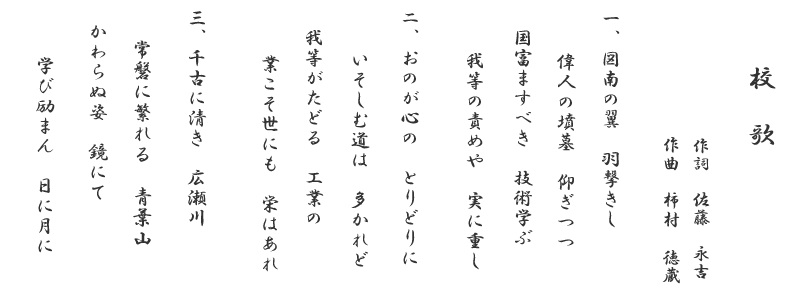 校歌
作詞 佐藤 永吉
作曲 柿村 徳蔵
一、図南の翼 羽撃きし
偉人の墳墓 仰ぎつつ
国富ますべき 技術学ぶ
我等の責めや 実に重し
二、おのが心の とりどりに
いそしむ道は 多かれど
我等がたどる 工業の
業こそ世にも 栄はあれ
三、千古に清き 広瀬川
常磐に繁れる 青葉山
かわらぬ姿 鏡にて
学び励まん 日に月に